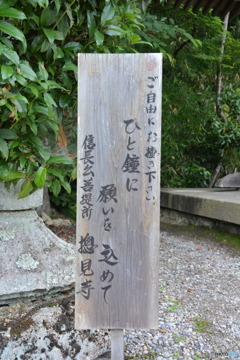 ご自由にお撞き下さい
ひと鐘に
願いを込めて
信長公菩提所
摠見寺